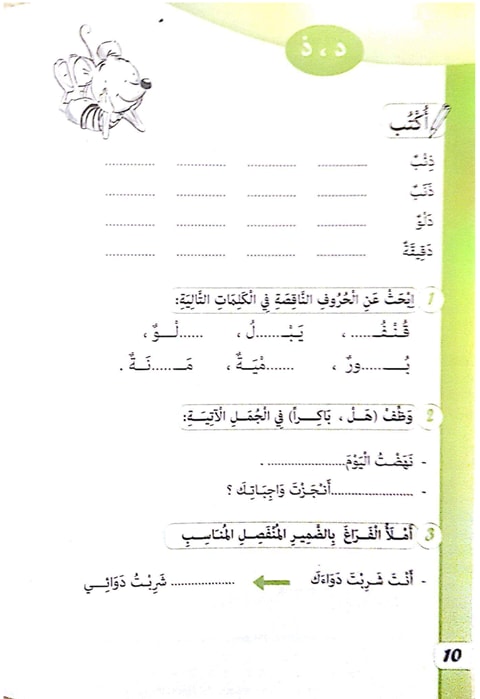 د ، ذ
أُكْتُب
ذِئْبٌ .............. .............. .............. ..............
ذَنَبٌ .............. .............. .............. ..............
دَلْوٌ .............. .............. .............. ..............
دَقِيقَةٌ .............. .............. .............. ..............
1 اِبْحَثْ عَنِ الْحُرُوفِ النَّاقِصَةِ فِي الْكَلِمَاتِ التَّالِيَةِ:
قُنْفُـ...... ، يَبْـ......لُ ، ......لْـوٌ ،
بُـ......ورٌ ، ......مْيَـةٌ ، مَـ......نَـةٌ .
2 وَظِّفْ (هَلْ ، بَاكِراً) فِي الْجُمَلِ الْآتِيَـةِ:
- نَهَضْتُ الْيَوْمَ.................. .
- ....................أَنْجَزْتَ وَاجِبَاتِـكَ ؟
3 أَمْـلَأُ الْفَـرَاغَ بِالضَّمِيرِ المُنْفَصِلِ المُنَاسِبِ
- أَنْتَ شَرِبْتَ دَوَاءَكَ ← ............... شَرِبْتُ دَوَائِـي
10